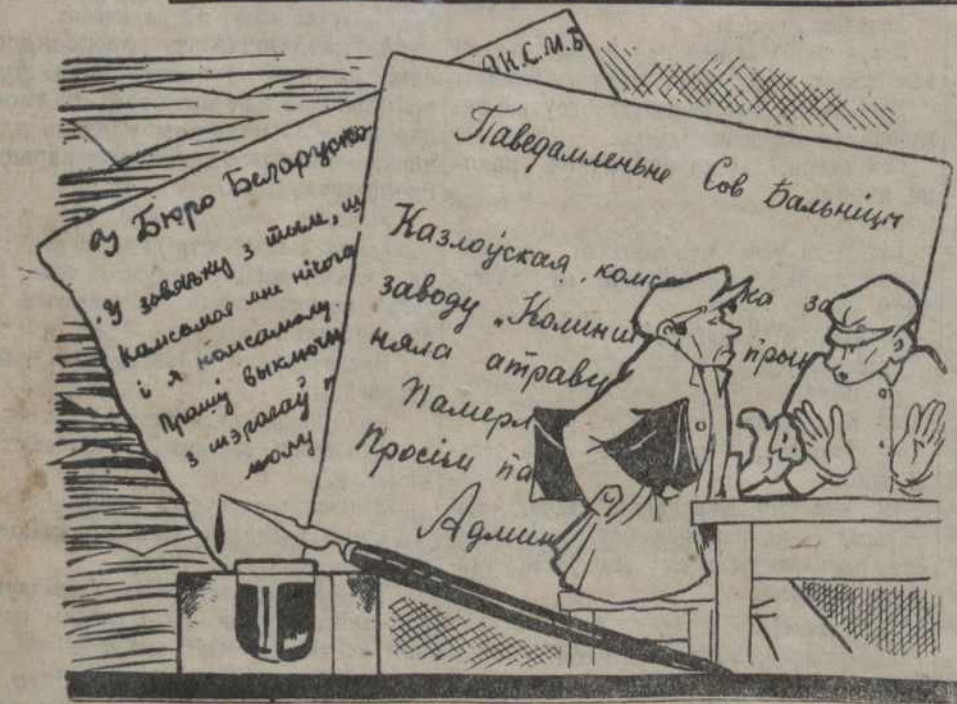 К.С.М.Б
У Бюро Беларуско
У звязьку з тым, щ
Камсамол мне нічога
і я комсамолу
Прашу выключы
з шэрагаў
молу
Паведамленьне Сов Бальніцы
Казлоўская, комс ка за
заводу „Калини прын
няла атраву
Памерл
Просім па
Админ